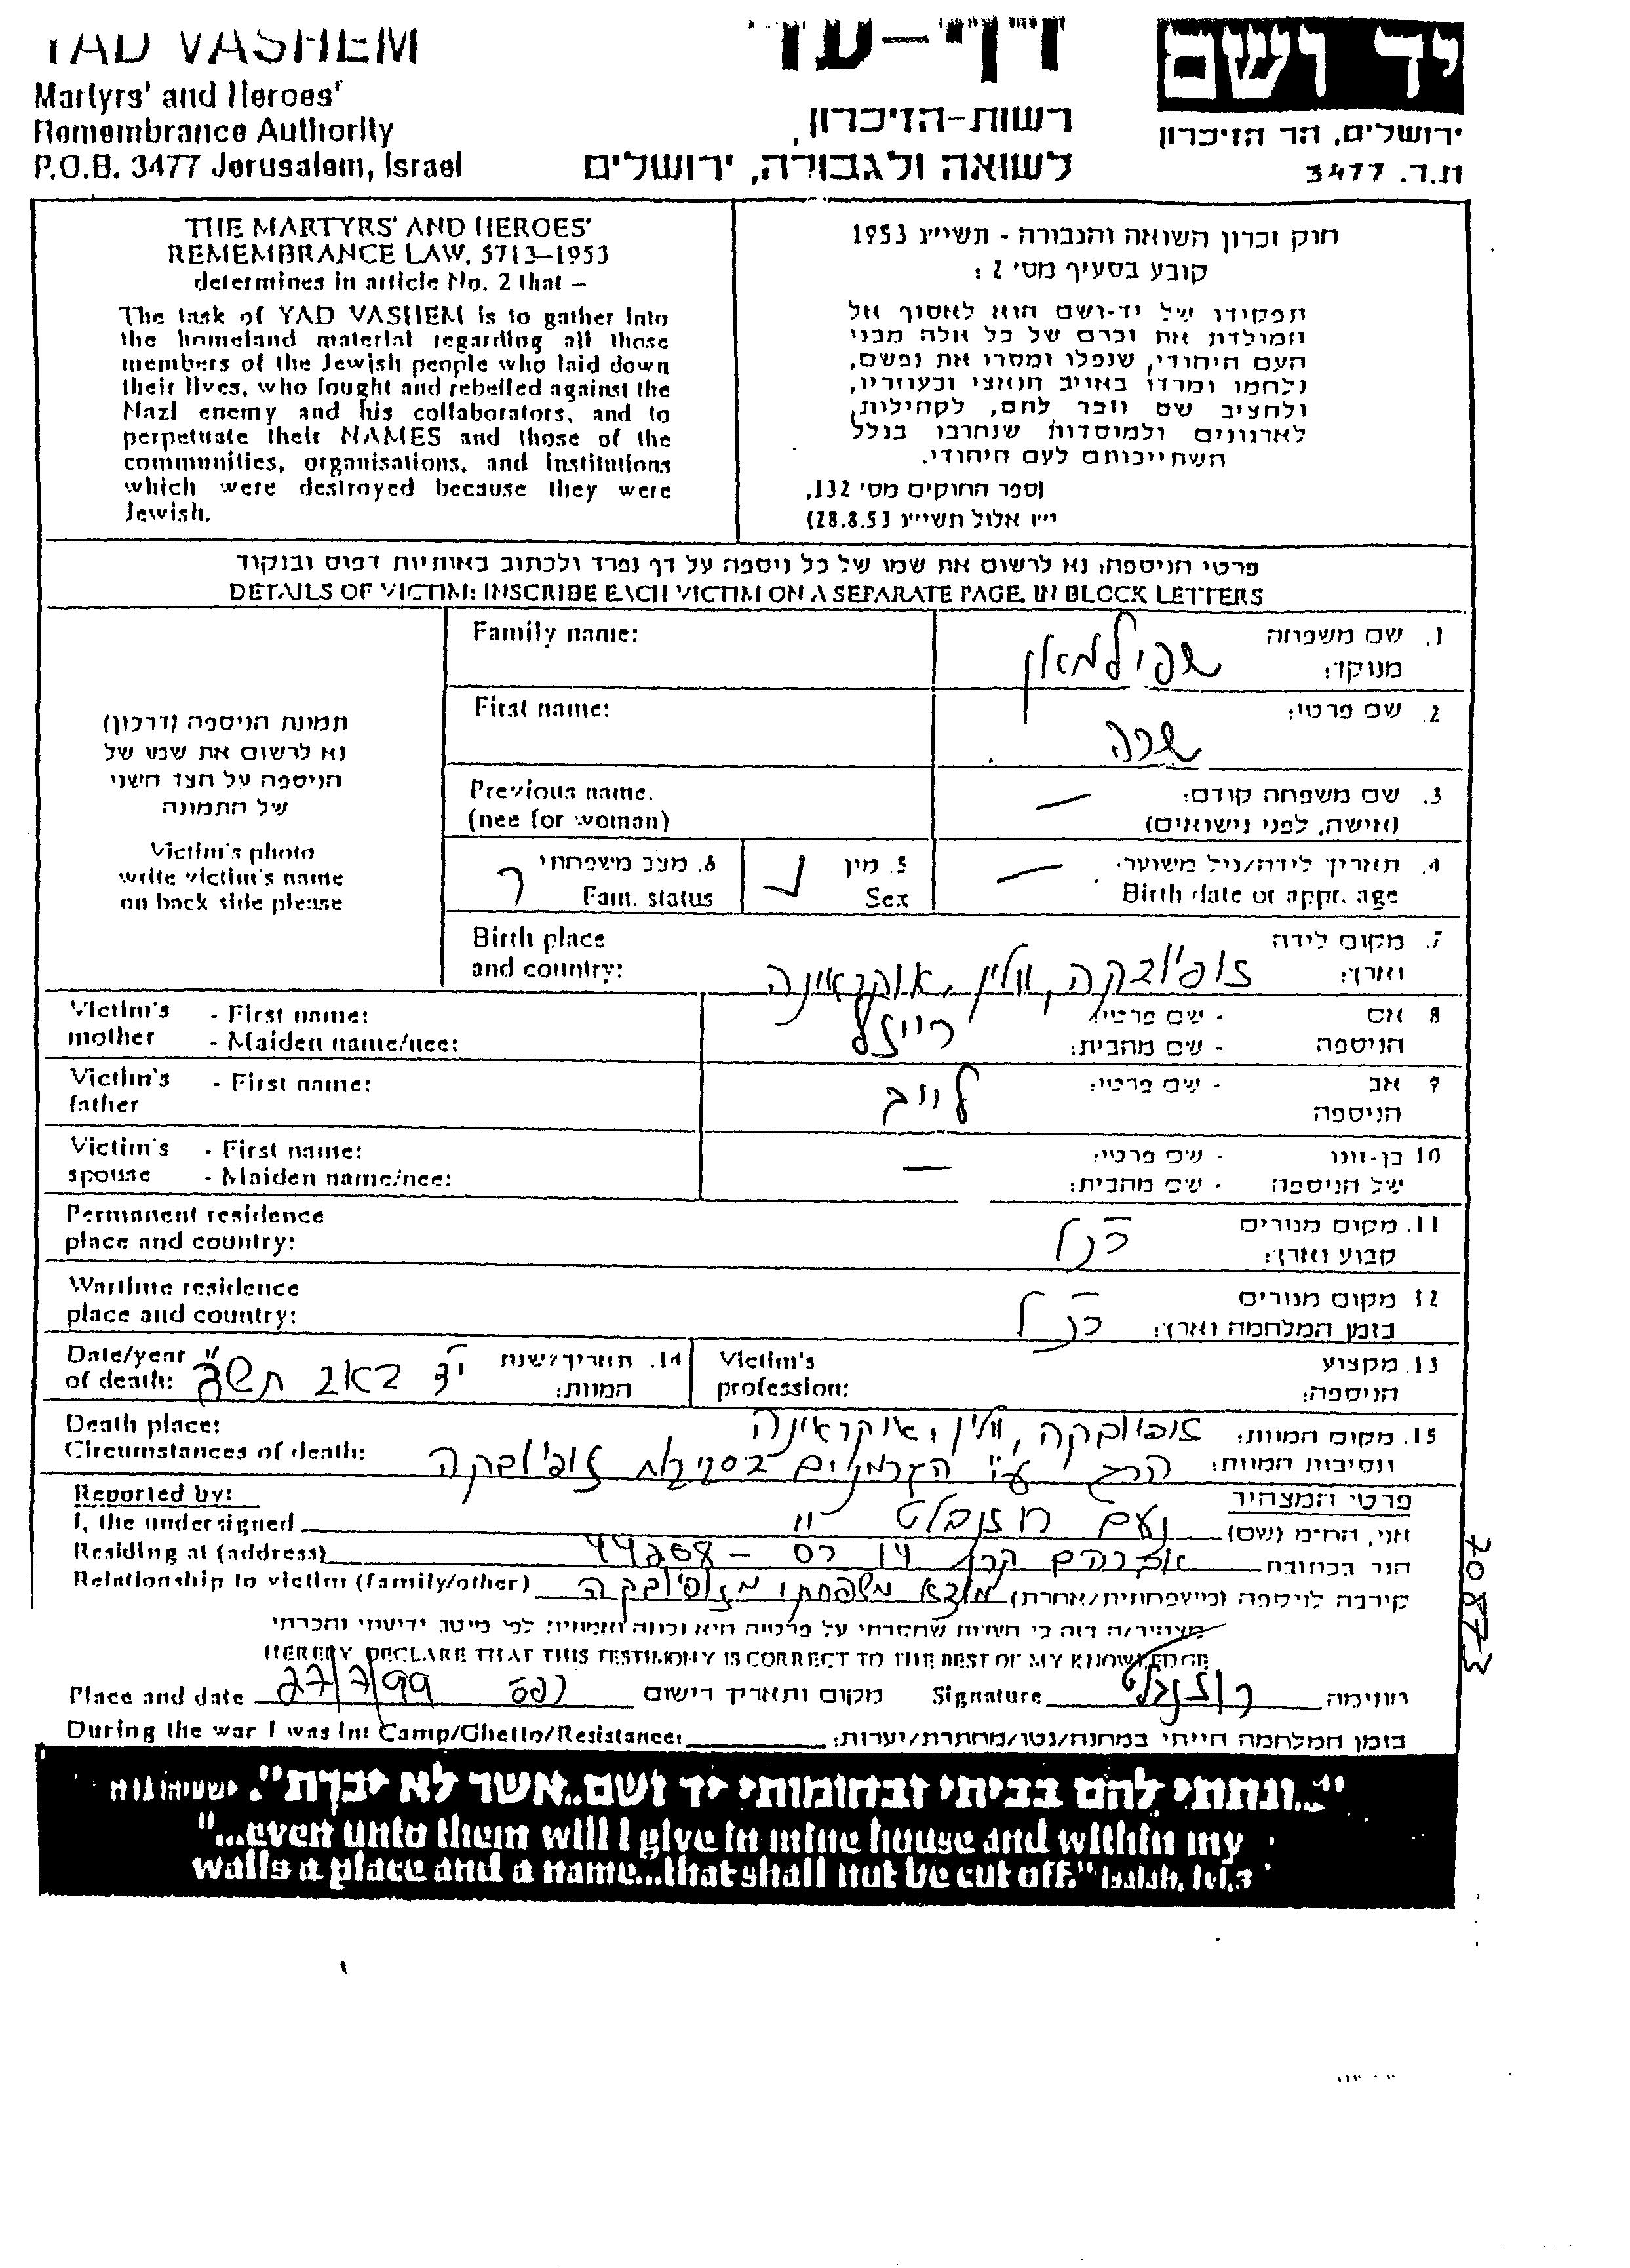 YAD VASHEM
Martyrs' and Heroes'
Remembrance Authority
P.O.B. 3477 Jerusalem, Israel
דף-עד
רשות-הזיכרון
לשואה ולגבורה, ירושלים
יד ושם
ירושלים, הר הזיכרון
ת.ד. 3477
THE MARTYRS' AND HEROES'
REMEMBRANCE LAW, 5713–1953
determines in article No. 2 that –
The task of YAD VASHEM is to gather into
the homeland material regarding all those
members of the Jewish people who laid down
their lives, who fought and rebelled against the
Nazi enemy and his collaborators, and to
perpetuate their NAMES and those of the
communities, organisations, and institutions
which were destroyed because they were
Jewish.
חוק זכרון השואה והגבורה - תשי״ג 1953
קובע בסעיף מס׳ 2 :
תפקידו של יד-ושם הוא לאסוף אל
המולדת את זכרם של כל אלה מבני
העם היהודי, שנפלו ומסרו את נפשם,
נלחמו ומרדו באויב הנאצי ובעוזריו,
ולהציב שם וזכר להם, לקהילות,
לארגונים ולמוסדות שנחרבו בגלל
השתייכותם לעם היהודי.
(ספר החוקים מס׳ 132,
י״ז אלול תשי״ג (28.8.53
פרטי הניספה: נא לרשום את שמו של כל ניספה על דף נפרד ולכתוב באותיות דפוס ובנקוד
DETAILS OF VICTIM: INSCRIBE EACH VICTIM ON A SEPARATE PAGE, IN BLOCK LETTERS
תמונת הניספה (דרכון)
נא לרשום את שמו של
הניספה על הצד השני
של התמונה
Victim's photo
write victim's name
on back side please
Family name: שפילמאן 1. שם משפחה
מנוקד:
First name: שרה 2. שם פרטי:
Previous name. — 3. שם משפחה קודם:
(nee for woman) (אישה, לפני נישואים)
6. מצב משפחתי ר 5. מין — 4. תאריך לידה/גיל משוער:
Fam. status Sex Birth date or appr. age
Birth place 7. מקום לידה
and country: זופיובקה, ווהלין, אוקראינה וארץ:
Victim's - First name: רייזל - שם פרטי: 8 אם
mother - Maiden name/nee: - שם מהבית: הניספה
Victim's - First name: לייב - שם פרטי: 9 אב
father הניספה
Victim's - First name: — - שם פרטי: 10 בן-זוגו
spouse - Maiden name/nee: - שם מהבית: של הניספה
Permanent residence 11. מקום מגורים
place and country: כנ״ל קבוע וארץ:
Wartime residence 12 מקום מגורים
place and country: כנ״ל בזמן המלחמה וארץ:
Date/year באב 14. תאריך/שנת Victim's 13. מקצוע
of death: המוות: profession: הניספה:
Death place: אוקראינה 15. מקום המוות:
Circumstances of death: ע״י הגרמנים בסביבת זופיובקה ונסיבות המוות:
Reported by: פרטי המצהיר
I, the undersigned נעם רוזנבלט אני, הח״מ (שם)
Residing at (address) אברהם קרן 14 כס - 44268 הגר בכתובת
Relationship to victim (family/other) מוצא משפחתו מזופיובקה קירבה לניספה (משפחתית/אחרת)
מצהיר/ה בזה כי העדות שמסרתי על פרטיה היא נכונה ואמיתית לפי מיטב ידיעתי והכרתי
HEREBY DECLARE THAT THIS TESTIMONY IS CORRECT TO THE BEST OF MY KNOWLEDGE
Place and date 27/7/99 מקום ותאריך רישום Signature רוזנבלט חתימה
During the war I was in: Camp/Ghetto/Resistance: בזמן המלחמה הייתי במחנה/גטו/מחתרת/יערות:
70873
"...ונתתי להם בביתי ובחומותי יד ושם..אשר לא יכרת".
"...even unto them will I give in mine house and within my
walls a place and a name...that shall not be cut off." Isaiah, lvi,3